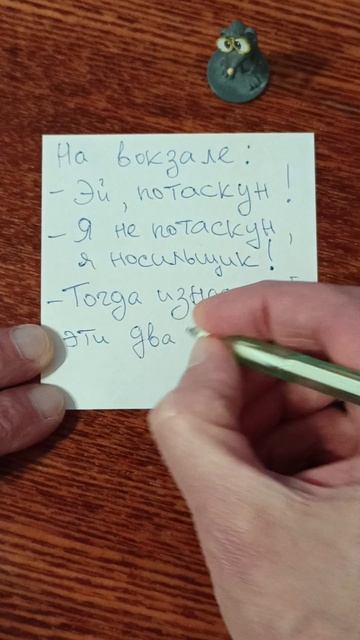 На вокзале:
- Эй, потаскун!
- Я не потаскун,
я носильщик!
- Тогда
эти два